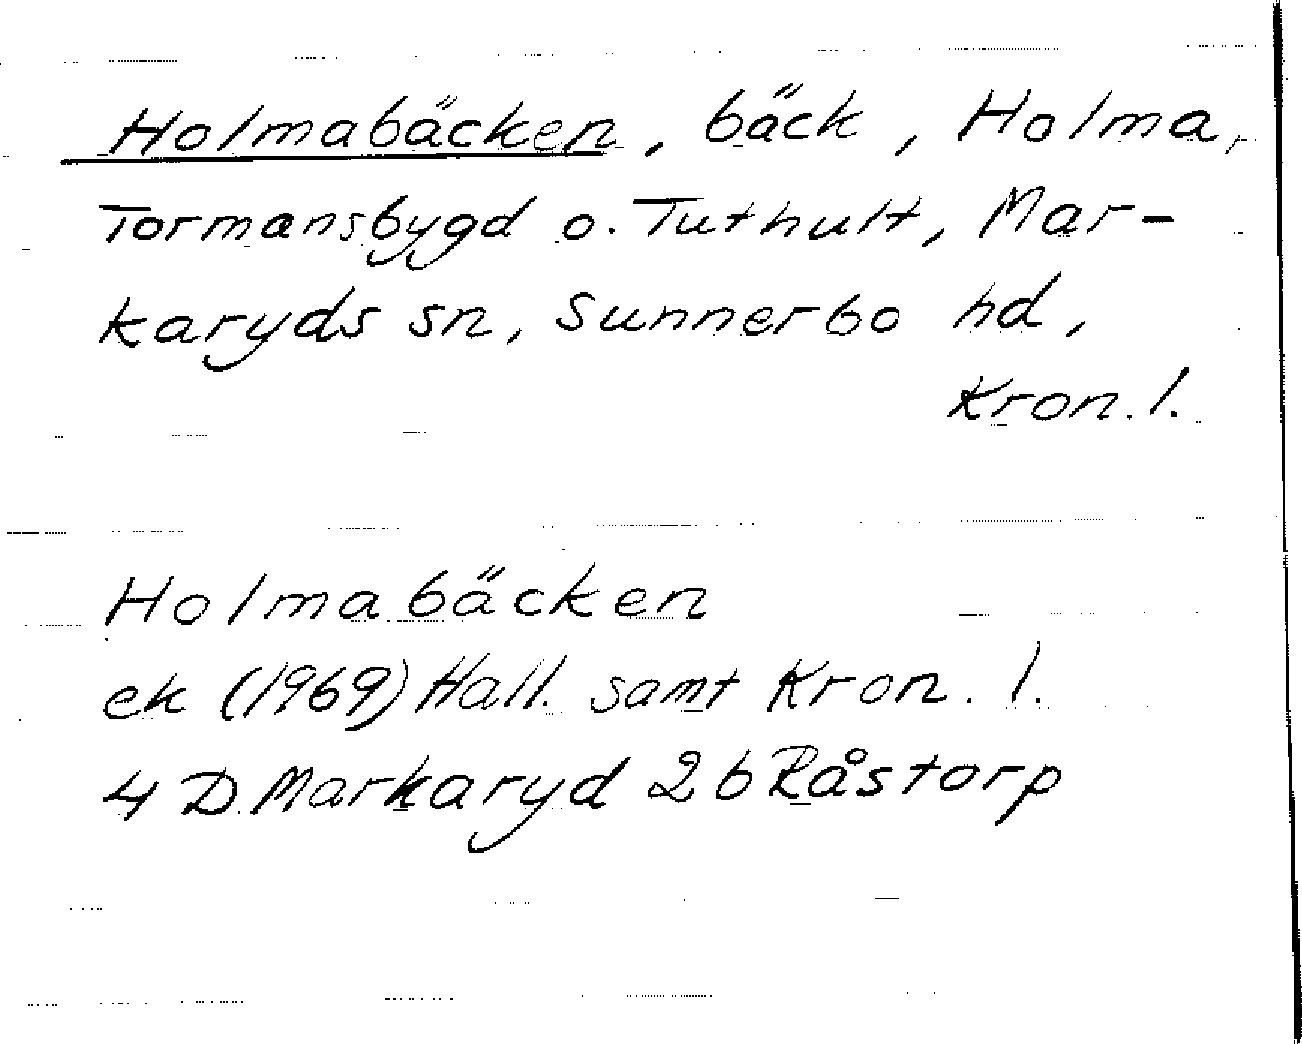 Holmabäcken, bäck, Holma,
Tormansbygd o. Tuthult, Mar-
karyds sn, Sunnerbo hd,
Kron. l.
Holmabäcken
ek (1969) Hall. samt Kron. l.
4 D Markaryd 2 b Råstorp